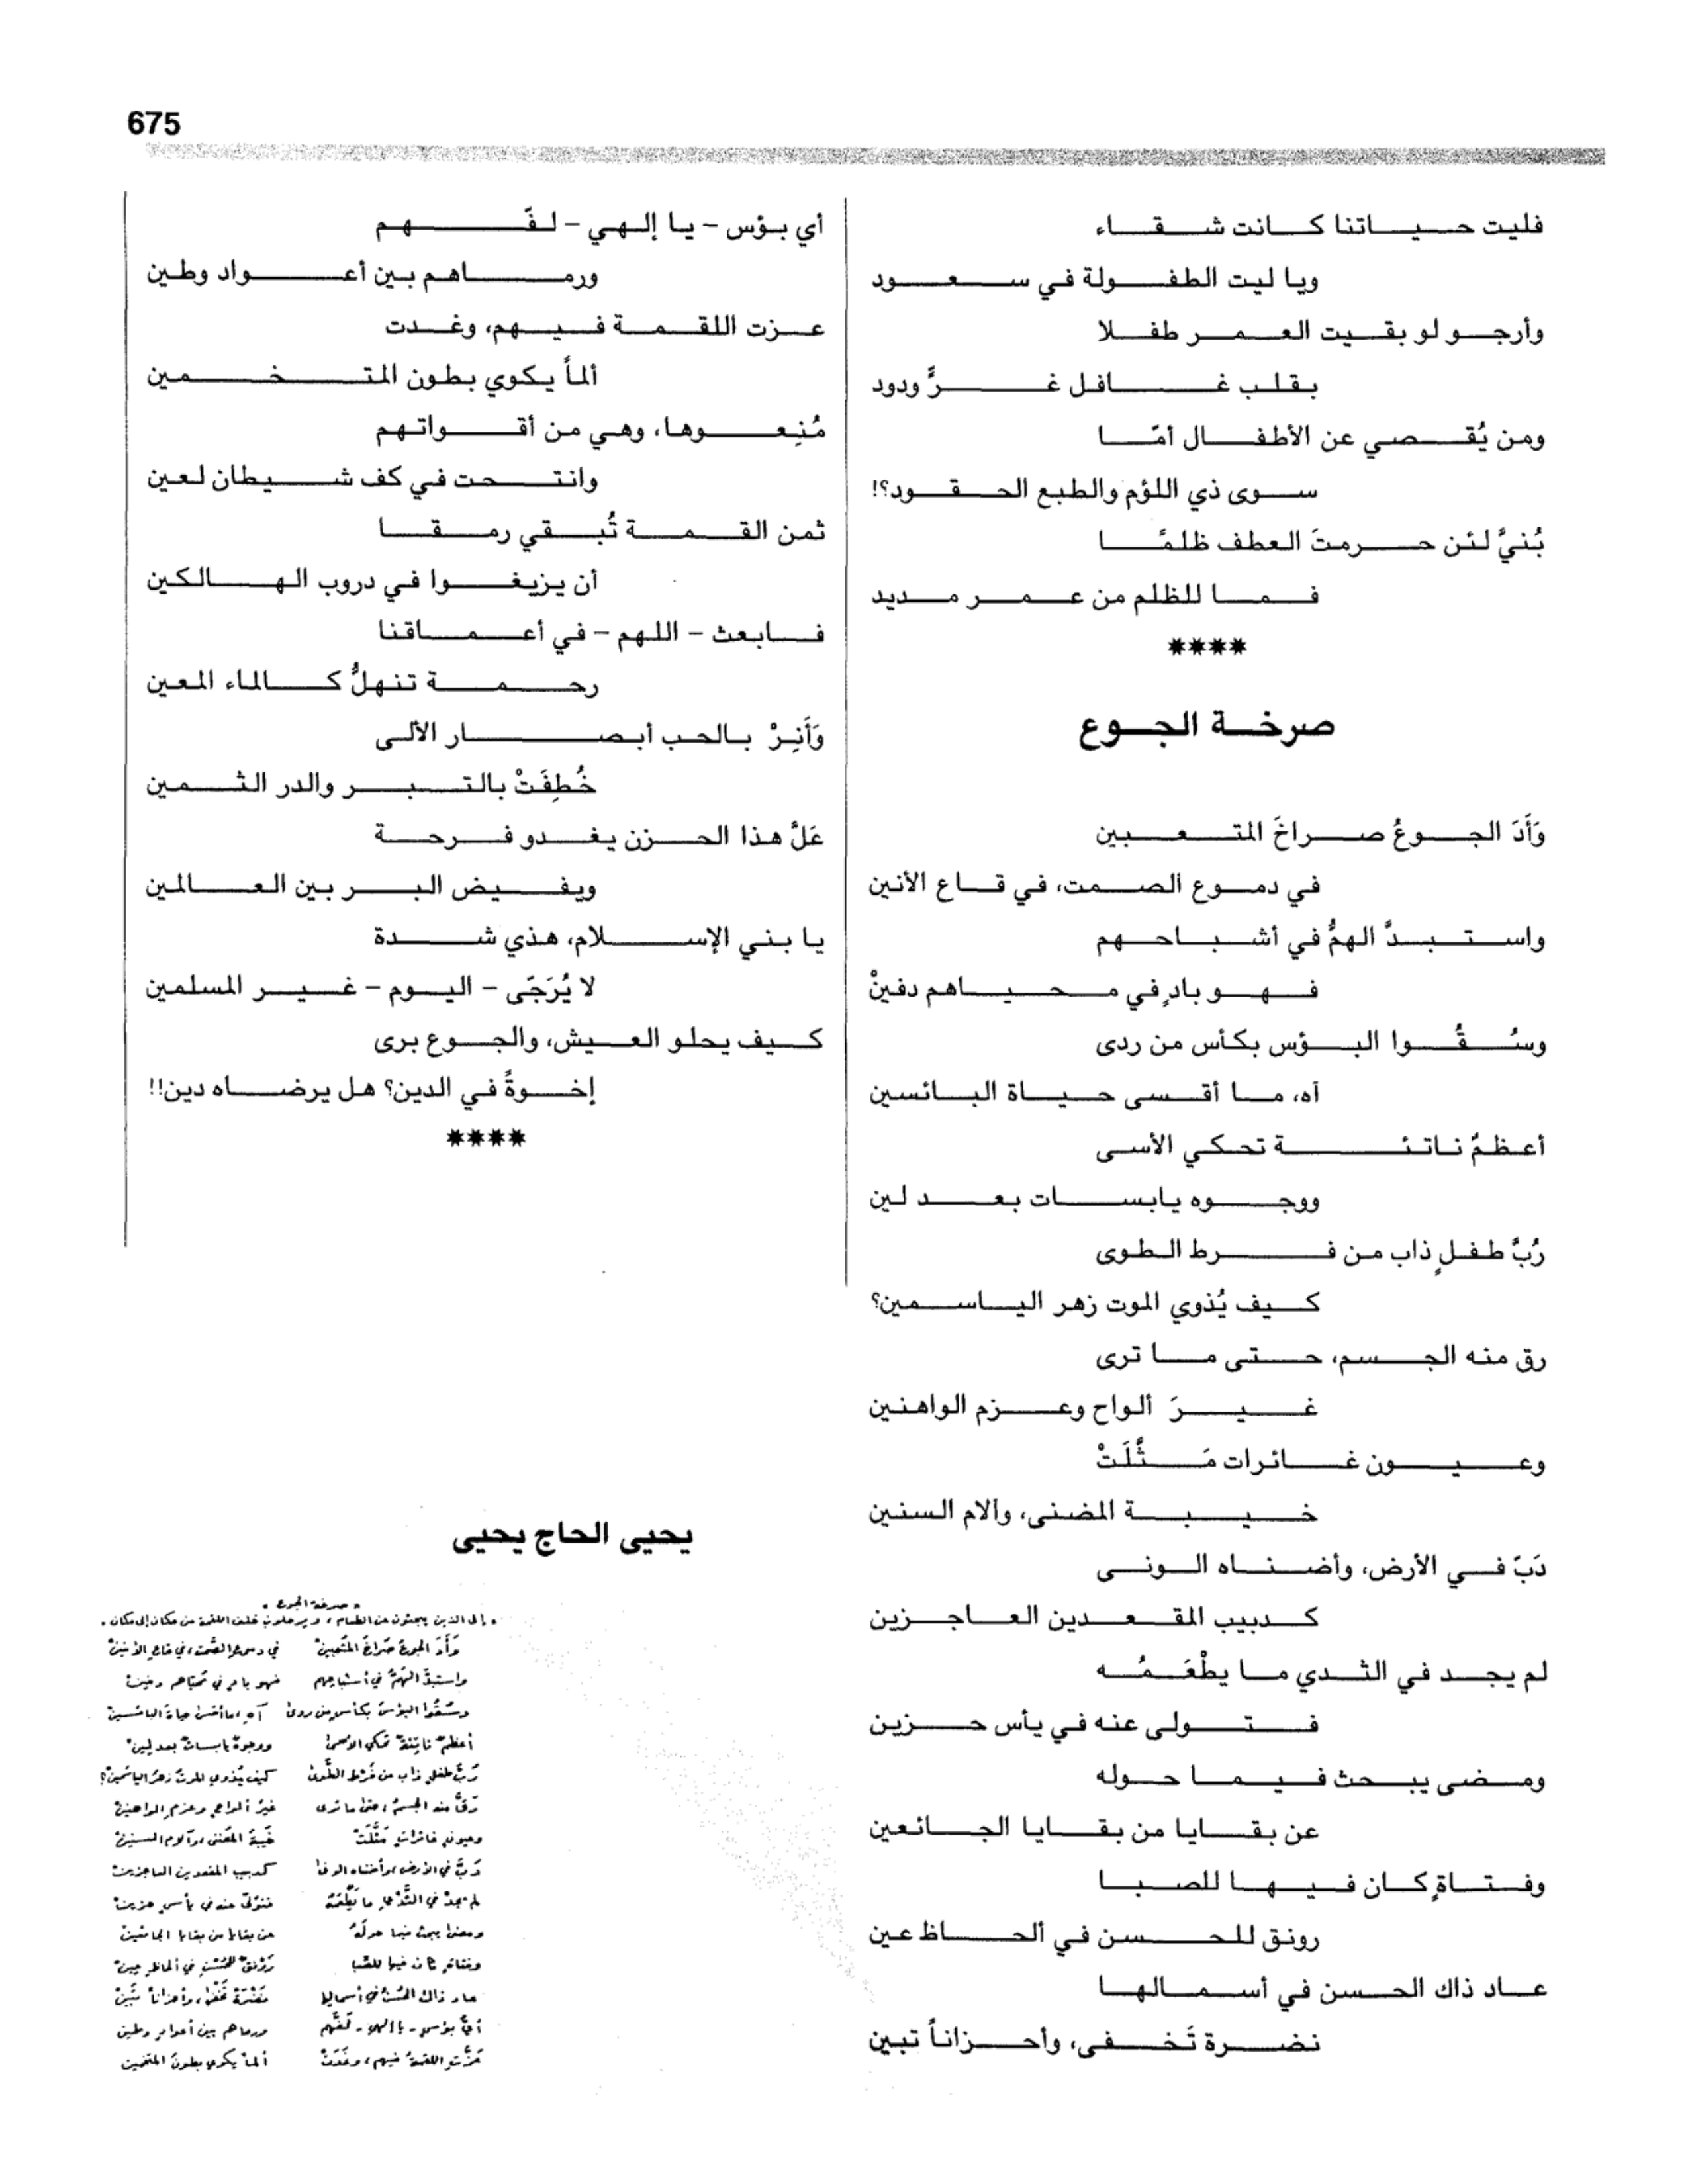 675
فليت حياتنا كانت شقاء
ويا ليت الطفولة في سعود
وأرجو لو بقيت العمر طفلا
بقلب غافل غرٍّ ودود
ومن يُقصي عن الأطفال أمّا
سوى ذي اللؤم والطبع الحقود؟!
بُنيَّ لئن حرمتَ العطف ظلمًا
فما للظلم من عمر مديد
****
صرخة الجوع
وَأَدَ الجوعُ صراخَ المتعبين
في دموع الصمت، في قاع الأنين
واستبدَّ الهمُّ في أشباحهم
فهو بادٍ في محياهم دفينْ
وسُقُوا البؤس بكأس من ردى
آه، ما أقسى حياة البائسين
أعظمٌ ناتئة تحكي الأسى
ووجوه يابسات بعد لين
رُبَّ طفلٍ ذاب من فرط الطوى
كيف يُذوي الموت زهر الياسمين؟
رق منه الجسم، حتى ما ترى
غيرَ ألواح وعزم الواهنين
وعيون غائرات مَثَّلَتْ
خيبة المضنى، وآلام السنين
دَبّ في الأرض، وأضناه الونى
كدبيب المقعدين العاجزين
لم يجد في الثدي ما يطْعَمُه
فتولى عنه في يأس حزين
ومضى يبحث فيما حوله
عن بقايا من بقايا الجائعين
وفتاةٍ كان فيها للصبا
رونق للحسن في ألحاظ عين
عاد ذاك الحسن في أسمالها
نضرة تَخفى، وأحزاناً تبين
أي بؤس - يا إلهي - لفّهم
ورماهم بين أعواد وطين
عزت اللقمة فيهم، وغدت
ألماً يكوي بطون المتخمين
مُنِعوها، وهي من أقواتهم
وانتحت في كف شيطان لعين
ثمن القمة تُبقي رمقا
أن يزيغوا في دروب الهالكين
فابعث - اللهم - في أعماقنا
رحمة تنهلُّ كالماء المعين
وَأَنِرْ بالحب أبصار الألى
خُطِفَتْ بالتبر والدر الثمين
عَلَّ هذا الحزن يغدو فرحة
ويفيض البر بين العالمين
يا بني الإسلام، هذي شدة
لا يُرَجّى - اليوم - غير المسلمين
كيف يحلو العيش، والجوع برى
إخوةً في الدين؟ هل يرضاه دين!!
****
يحيى الحاج يحيى
" صرخة الجوع "
" إلى الذين يبحثون عن الطعام، ويرحلون خلف اللقمة من مكان إلى مكان "
وَأَدَ الجوعُ صُراخَ المتعبينْ في دموع الصَّمت، في قاع الأنينْ
واستبدَّ الهمُّ في أشباحهم فهو بادٍ في مُحيّاهم دفينْ
وسُقُوا البؤسَ بكأسٍ من ردىً آهِ، ما أقسى حياةَ البائسينْ
أعظمٌ ناتئةٌ تحكي الأسى ووجوهٌ يابساتٌ بعد لينْ
رُبَّ طفلٍ ذاب من فَرْط الطَّوى كيف يُذوي الموتُ زهرَ الياسمينْ؟
رَقَّ منه الجسمُ، حتى ما ترى غيرَ ألواحٍ وعزمِ الواهنينْ
وعيونٍ غائراتٍ مَثَّلَتْ خَيبةَ المُضنى، وآلامَ السنينْ
دَبَّ في الأرض، وأضناه الونى كدبيب المقعدين العاجزينْ
لم يجدْ في الثَّدْي ما يَطْعَمُهُ فتولّى عنه في يأسٍ حزينْ
ومضى يبحث فيما حولَهُ عن بقايا من بقايا الجائعينْ
وفتاةٍ كان فيها للصّبا رَوْنقٌ للحُسْنِ في ألحاظِ عِينْ
عاد ذاك الحُسْنُ في أسمالها نَضْرَةً تَخْفى، وأحزاناً تَبينْ
أيُّ بؤسٍ - يا إلهي - لَفَّهم ورماهم بين أعوادٍ وطين
عَزَّتِ اللقمةُ فيهم، وغَدَتْ ألماً يكوي بطونَ المتخمين